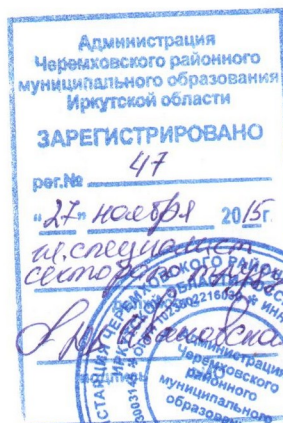 Администрация
Черемховского районного
муниципального образования
Иркутской области
ЗАРЕГИСТРИРОВАНО
рег.№ 47
"27" ноября 2015г.
гл. специалист
сектора по труду
Администрация
Черемховского
районного
муниципального
образования